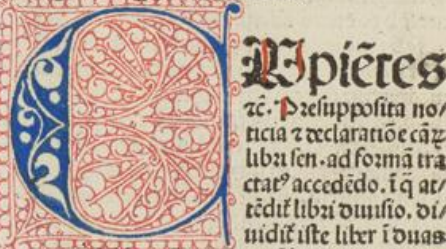 C Upiẽtes
⁊c̃. Presupposita no
ticia ⁊ declaratiõe cãꝝ
libri sen. ad formã tra
ctatꝰ accedẽdo. ĩ q̃ at/
tẽdit̃ libri diuisio. di/
uidit̃ iste liber ĩ duas